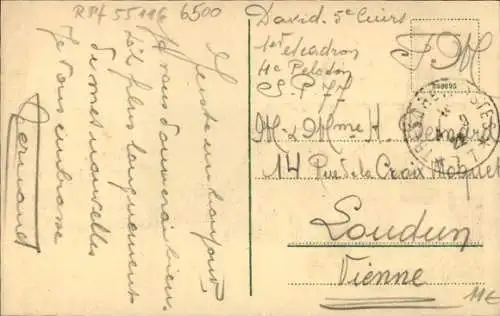 RPf 55116 6500
Reste en
Je vous donnerai bien-
tôt plus longuement
de mes nouvelles
Je vous embrasse
Fernand
David. 5e Cuirs
1er Escadron
4e Peloton
S P 77
F M
M. & Mme H. Bernard
14 Rue de la Croix
Loudun
Vienne
11€